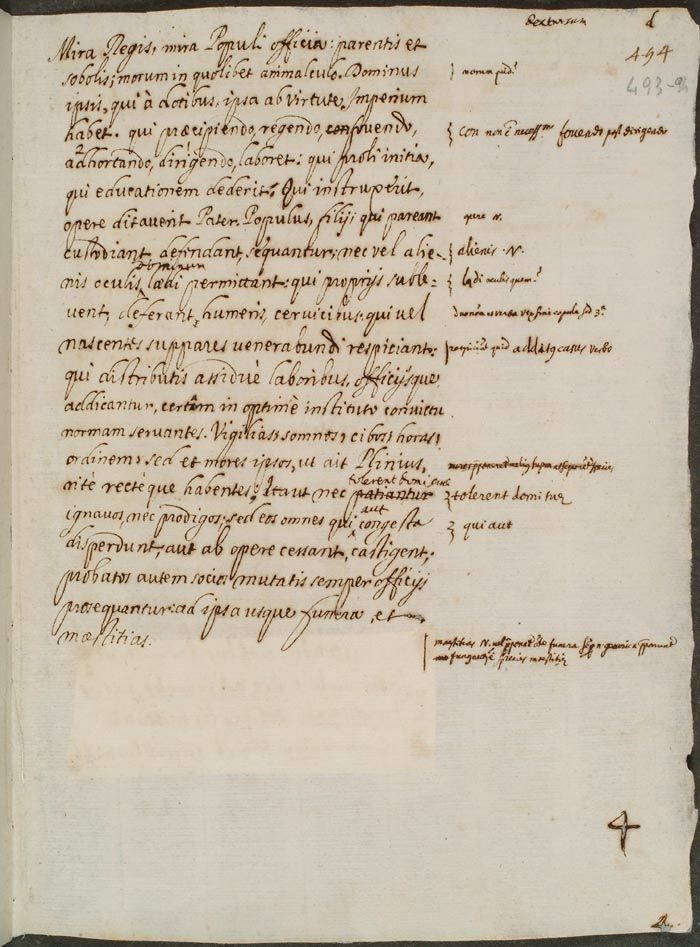 dextrorsum
d
494
493-94
Mira Regis, mira Populi officia: parentis et
sobolis; morum in quolibet animalculo. Dominus
ipsis, qui à dotibus, ipsa ab virtute, Imperium
habet. qui præcipiendo, regendo, confovendo,
adhortando, dirigendo, laboret: qui proli initia,
qui educationem dederit. Qui instruxerit,
opere ditaverit Pater. Populus, filij; qui pareant
custodiant, defendant, sequantur; nec vel alie-
nis oculis, Dominum lædi permittant: qui proprijs suble-
vent, deferant, humeris, cervicibus: qui vel
nascentes suppares venerabundi respiciant:
qui distributis assiduè laboribus, officijsque
addicantur, certam in optimè instituto convictu
normam servantes. Vigilias, somnos, cibos, horas,
ordinem, sed et mores ipsos, ut ait Plinius,
ritè rectèque habentes. Itaut nec patiantur tolerent domi suæ
ignavos, nec prodigos; sed eos omnes qui aut congesta
disperdunt, aut ab opere cessant, castigent;
probatos autem socios mutatis semper officijs
prosequantur: ad ipsa usque funera, et
mæstitias.
morum quid
con non è fovendo post dirigendo
alienis N.
lædi oculis quem
addit casus verbo
tolerent domi suæ
qui aut
mæstitias N. funera
mæstitiæ
4